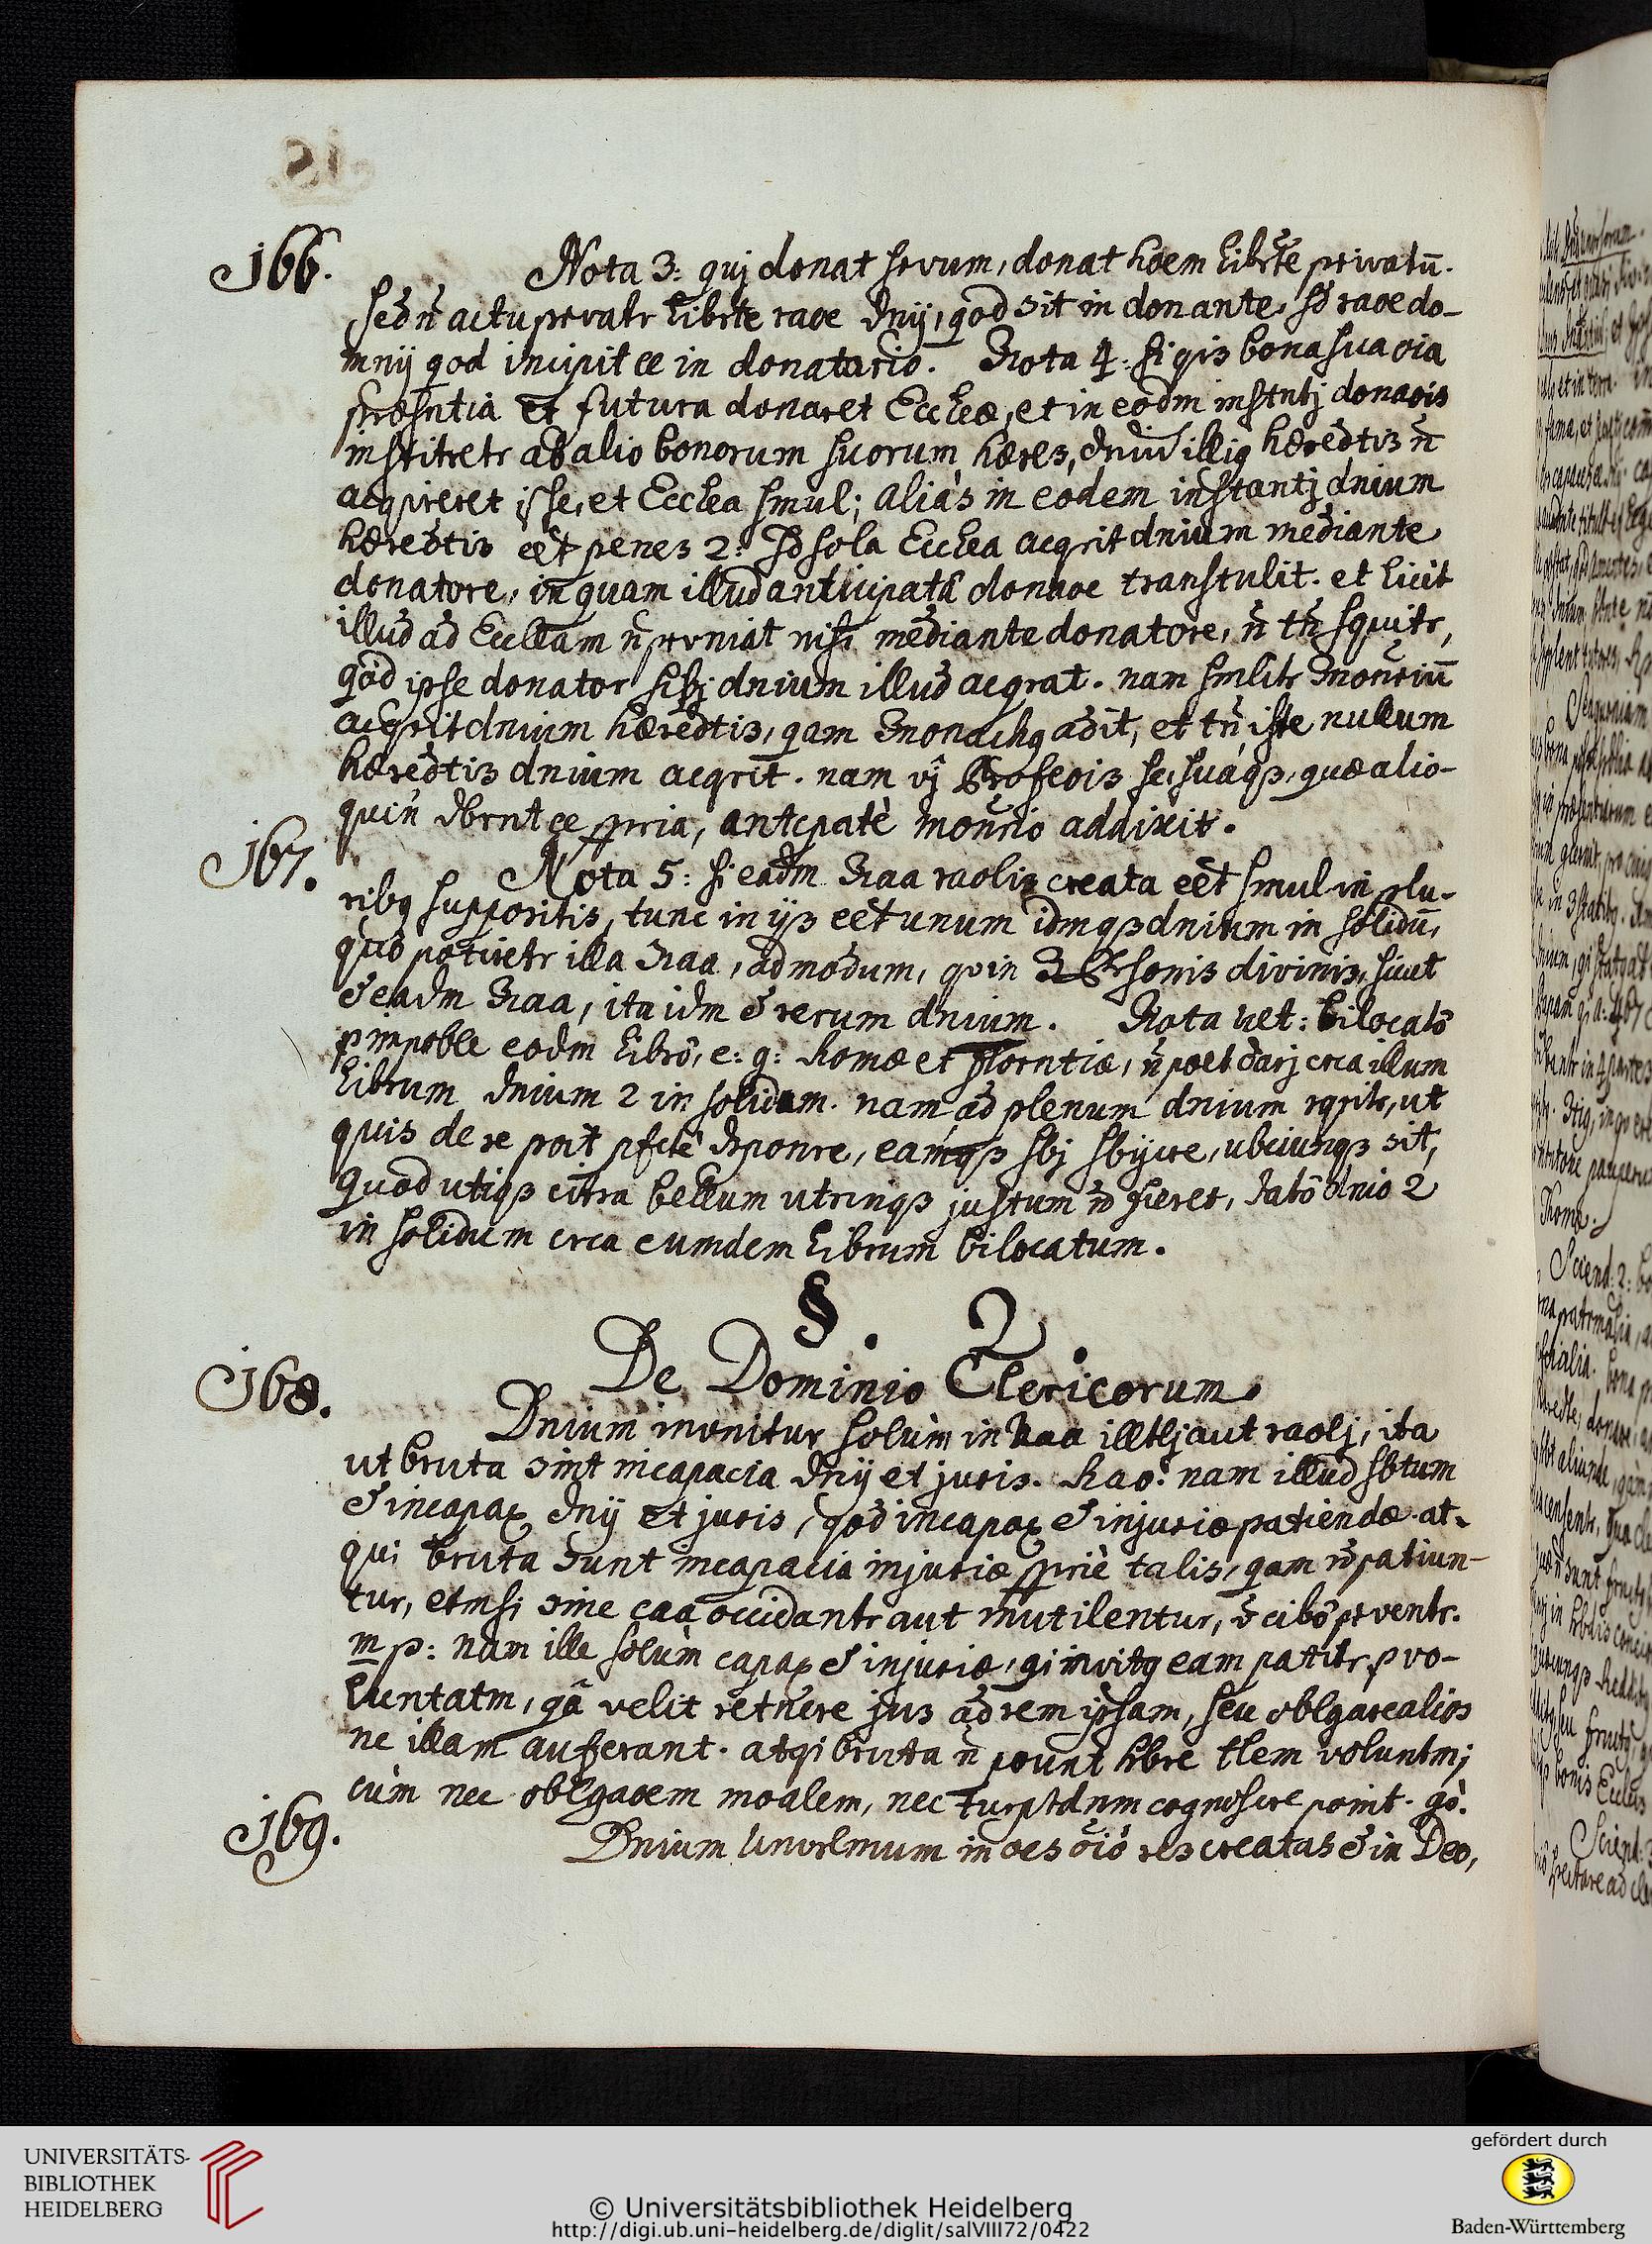 166.
Nota 3: quj donat servum, donat hoem librte privatū.
sed n̄ actu prvatr librte raoe dnij, qod sit in donante, sd raoe do-
mnij qod incipit ee in donatario. Nota 4: si qis bona sua oia
præsntia et futura donaret Eccleæ, et in eodm instntj donaois
institretr ab alio bonorum suorum hæres, dniū illiq hæredtis n̄
acqireret ipse, et Ecclea smul; aliàs in eodem instantj dnium
hæredtis eēt penes 2: sd sola Ecclea acqrit dnium mediante
donatore, in quam illud anticipatâ donaoe transtulit. et licit
illud ad Eccleam n̄ prvniat nisi mediante donatore, n̄ tn̄ squitr,
qod ipse donator sibj dnium illud acqrat. nam smlitr monriū
acqrit dnium hæredtis, qam monachq adit, et tn̄ iste nullum
hæredtis dnium acqrit. nam vj Profeois se, suaqз, quæ alio-
quin dbrnt ee ppria, antcpatè monrio addixit.
167.
Nota 5: si eadm naa raolis creata eēt smul in plu-
ribq suppositis, tunc in ijs eēt unum idmqз dnium in solidū,
quo potiretr illa naa, admodum, qo in 3 Prsonis divinis, sicut
e eadm naa, ita idm e rerum dnium. Nota vlt: bilocatô
p impoble eodm librô, e: g: Romæ et Florntiæ, n̄ poet darj crca illum
librum dnium 2 in solidum. nam ad plenum dnium rqritr, ut
quis de re poit pfctè dsponre, eamqз sbj sbijcre, ubciunqз sit,
Quod utiqз citra bellum utrinqз justum n̄ fieret, datô dnio 2
in solidum crca eumdem librum bilocatum.
§. 2.
De Dominio Clericorum.
168.
Dnium invnitur solùm in naa illtlj aut raolj, ita
ut bruta sint incapacia dnij et juris. Rao: nam illud sbtum
e incapax dnij et juris, qod incapax e injuriæ patiendæ. at-
qui bruta sunt incapacia injuriæ pprie talis, qam n̄ patiun-
tur, etmsi sine caa occidantr aut mutilentur, ê cibô prventr.
m p: nam ille solùm capax e injuriæ, qi invitq eam patitr p vo-
luntatm, qâ velit retnere jus ad rem ipsam, seu oblgare alios
ne illam auferant. atqi bruta n̄ pount hbre tlem voluntm;
cùm nec oblgaoem moalem, nec turptdnm cognoscere point. gò.
169.
Dnium Unvrlmum in oes oiò res creatas e in Deo,
UNIVERSITÄTS-
BIBLIOTHEK
HEIDELBERG
© Universitätsbibliothek Heidelberg
http://digi.ub.uni-heidelberg.de/diglit/salVIII72/0422
gefördert durch
Baden-Württemberg